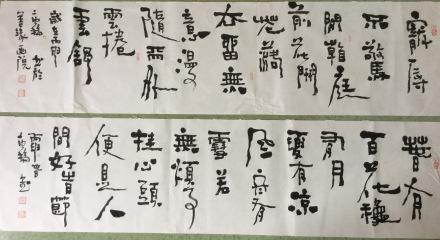 寵辱
不驚
閒看庭
前花開
花落
去留無
意漫
隨天外
雲捲
雲舒
春有
百花秋
有月
夏有涼
風冬有
雪若
無煩事
挂心頭
便是人
間好時節